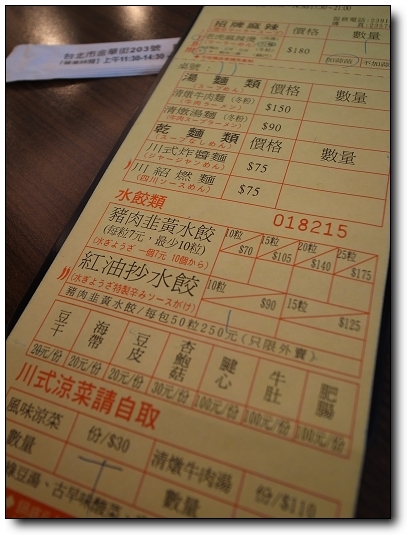 台北市金華街203號
上午11:30-14:30
招牌麻辣 價格 數量
$180
湯麵類 價格 數量
清燉牛肉麵(冬粉) $150
清燉湯麵(冬粉) $90
乾麵類 價格 數量
川式炸醬麵 $75
(ジャージャンめん)
川紹燃麵 $75
(四川ソースめん)
水餃類 018215
豬肉韭黃水餃 10粒 $70 15粒 $105 20粒 $140 25粒 $175
(每粒7元,最少10粒)
(水ぎょうざ 一個7元 10個から)
紅油抄水餃 10粒 $90 15粒 $125
(水ぎょうざ特製辛みソースがけ)
豬肉韭黃水餃/每包50粒250元(只限外賣)
豆干 海帶 豆皮 杏鮑菇 腱心 牛肚 肥腸
20元/份 20元/份 20元/份 30元/份 100元/份 100元/份 100元/份
川式涼菜請自取
風味涼菜 份/$30 清燉牛肉湯 份/$110
數量 數量
綠豆湯、古早味酸菜